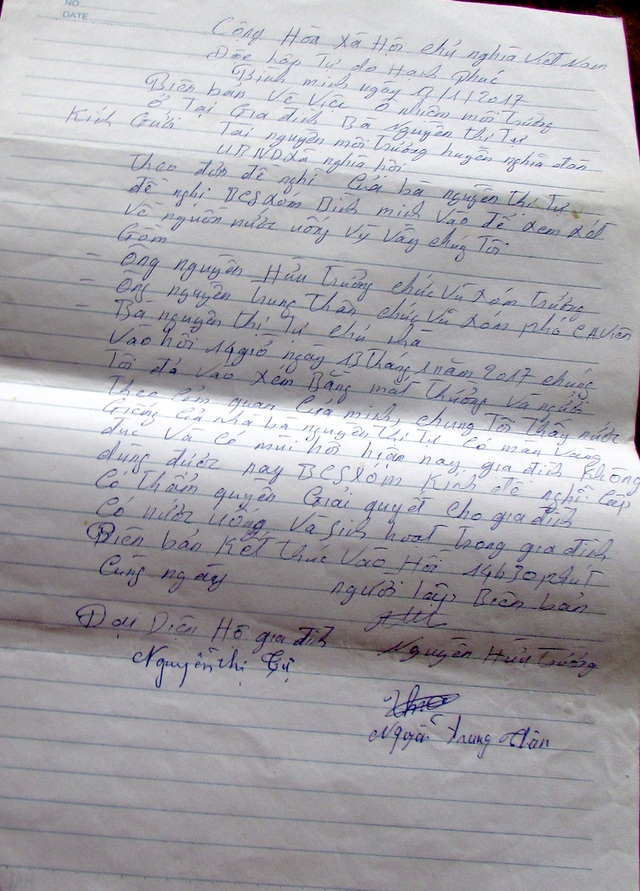 NO
DATE
Cộng Hòa xã Hội chủ nghĩa Việt Nam
Độc lập Tự do Hạnh Phúc
Bình minh ngày 13/1/2017
Biên bản Về Việc Ô nhiễm môi trường
ở Tại Gia đình Bà Nguyễn thị Tự
Kính Gửi Tài nguyên môi trường huyện nghĩa đàn
UBND xã nghĩa hội
Theo đơn đề nghị Của bà nguyễn thị Tự
đề nghị BCS xóm Bình minh Vào để xem xét
Về nguồn nước uống Vỳ Vậy chúng Tôi
Gồm
- Ông nguyễn Hữu Trường chức Vụ xóm trưởng
- Ông nguyễn trung Thân chức Vụ xóm phó CA Viên
- Bà nguyễn thị Tự chủ nhà
Vào hồi 14 giờ ngày 13 tháng 1 năm 2017 chúng
Tôi đã Vào xem Bằng mắt thường Và ngửi
Theo cảm quan Của mình, chúng Tôi thấy nước
Giếng Của nhà bà nguyễn thị Tự Có màu Vàng
đục Và Có mùi hôi hiện nay gia đình không
dùng được nay BCS xóm Kính đề nghị Cấp
Có thẩm quyền Giải quyết Cho gia đình
Có nước Uống Và Sinh hoạt trong gia đình
Biên bản Kết thúc Vào Hồi 14h30 phút
Cùng ngày người lập Biên bản
Đại Diện Hộ gia đình
Nguyễn Hữu Trường
Nguyễn thị Tự
Nguyễn Trung Thân